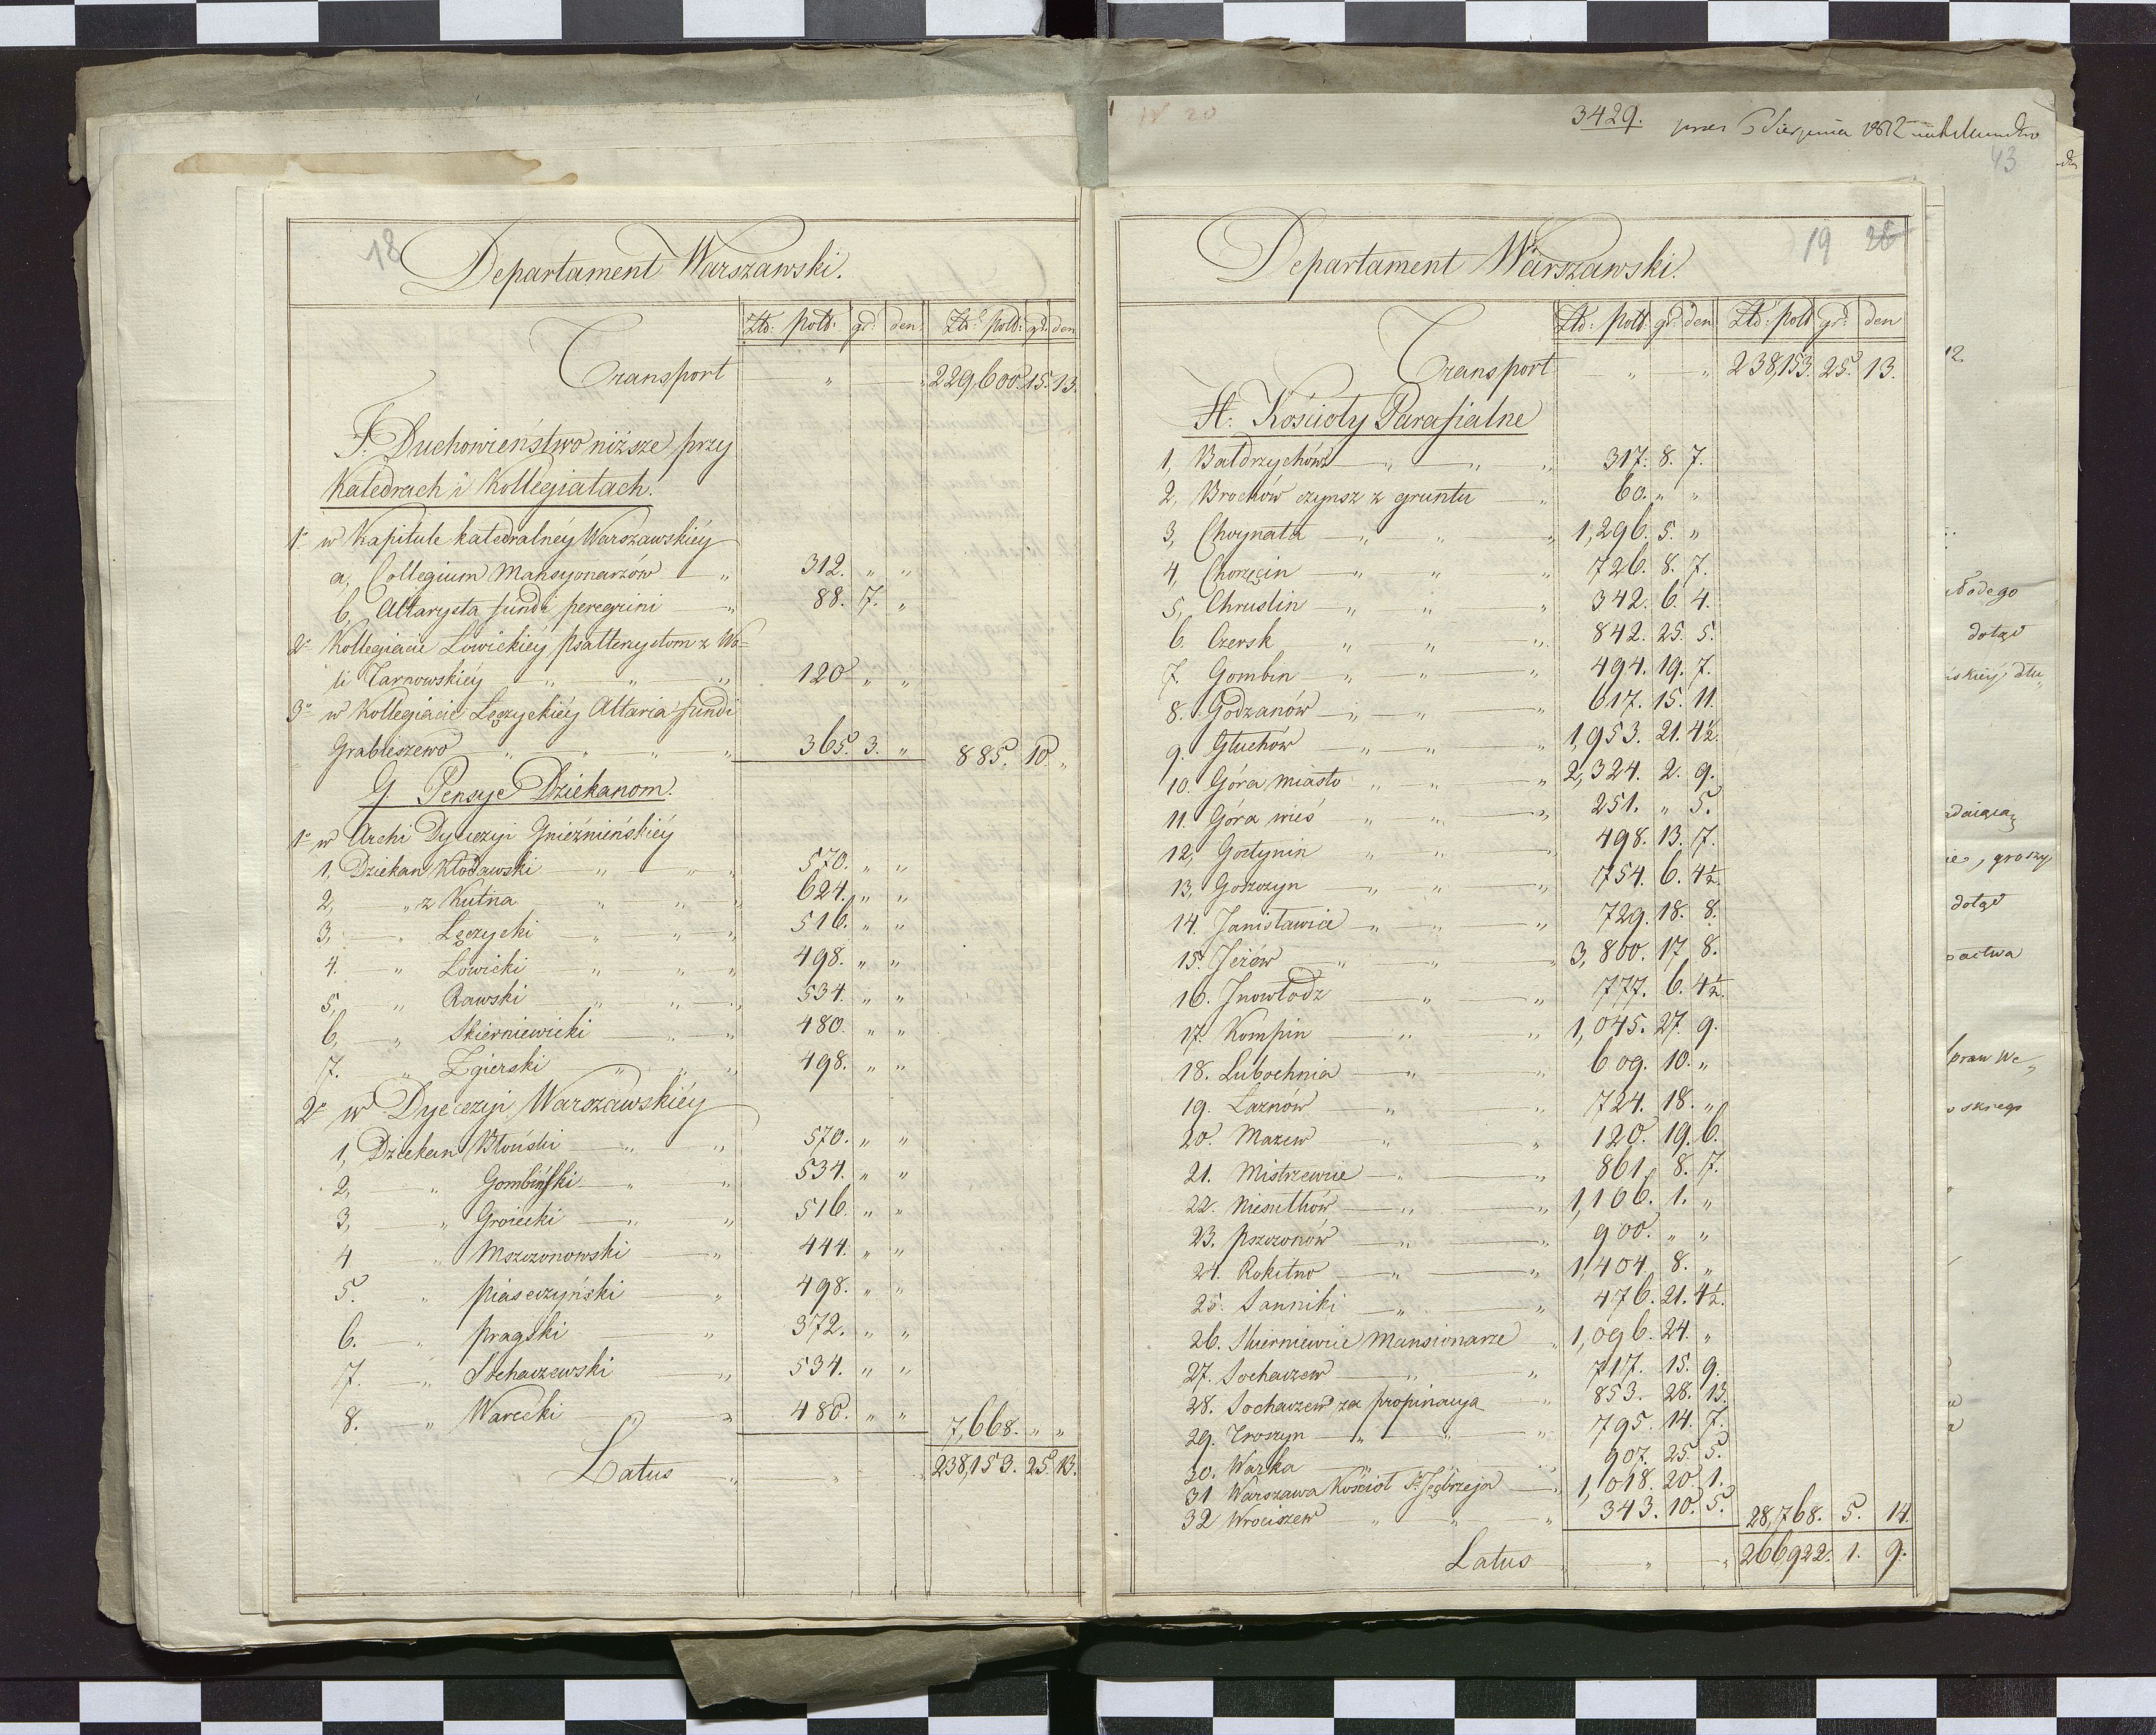 18
Departament Warszawski.
Złt: pols: gr: den Złt: pols: gr: den
Transport " " 229,600. 15. 13.
F. Duchowieństwo niższe przy
Katedrach i Kollegiatach.
1o w Kapitule katedralnéy Warszawskiéy
a, Collegium Mansyonarzów " 312. " "
b, Altarysta fundi peregrini " 88. 7. "
2o Kollegiacie Łowickiéy psalterzystom z Wo=
li Tarnowskiéy " " " 120 " "
3o w Kollegiacie Łęczyckiéy Altaria fundi
Grabiszewo " " " " 365. 3. " 885. 10. "
G. Pensye Dziekanom.
1o w Archi Dyecezyi Gnieźnieńskiéy
1, Dziekan Kłodawski " " " 570. " "
2, " z Kutna " " " 624. " "
3, " Łęczycki " " " 516. " "
4. " Łowicki " " " 498. " "
5, " Rawski " " " 534. " "
6, " Skierniewicki " " 480. " "
7. " Zgierski " " " 498. " "
2o w Dyecezyi Warszawskiéy
1, Dziekan Błoński " " 570. " "
2, " Gombiński " " 534. " "
3, " Groiecki " " 516. " "
4 " Mszczonowski " 444. " "
5. " piaseczyński " 498. " "
6. " pragski " 372. " "
7. " Sochaczewski " 534. " "
8. " Warecki " 480. " " 7,668. " "
Latus " " " 238,153. 25. 13.
3429.
43
19 26
Departament Warszawski.
Złt: pols gr: den Złt: pols gr: den
Transport " " 238,153. 25. 13.
H: Kościoły Parafialne
1, Bałdrzychów " " " 317. 8. 7.
2, Brochów czynsz z gruntu " 60. " "
3, Chojnata " " " 1,296. 5. "
4, Chorzęcin " " " 726. 8. 7.
5, Chruslin " " " 342. 6. 4.
6. Czersk " " " 842. 25. 5.
7. Gombin " " " 494. 19. 7.
8. Godzanów " " " 617. 15. 11.
9. Głuchów " " " 1,953. 21. 4½.
10. Góra miasto " " " 2,324. 2. 9.
11. Góra wieś " " " 251. " 5.
12, Gostynin " " " 498. 13. 7.
13, Goszczyn " " " 754. 6. 4½.
14. Janisławice " " " 729. 18. 8.
15. Jeżów " " " 3,800. 17. 8.
16. Jnowłodz " " 777. 6. 4½.
17. Kompin " " 1,045. 27. 9.
18. Lubochnia " " 609. 10. "
19. Łaznów " " 724. 18. "
20. Mazew " " 120. 19. 6.
21. Mistrzewice " " 861. 8. 7.
22. Niesułków " " 1,106. 1. "
23. pszczonów " " 900. " "
24. Rokitno " " 1,404. 8. "
25. Sanniki " " 476. 21. 4½.
26. Skierniewice Mansionarze " 1,096. 24. "
27. Sochaczew " " 717. 15. 9.
28. Sochaczew za propinacya " 853. 28. 13.
29. Troszyn " " " 795. 14. 7.
30. Warka " " " 907. 25. 5.
31 Warszawa Kościoł S. Jędrzeja " 1,018. 20. 1.
32 Wrociszew " " " 343. 10. 5. 28,768. 5. 14.
Latus " " " 266922. 1. 9.
12
dotąd
groszy
dotąd